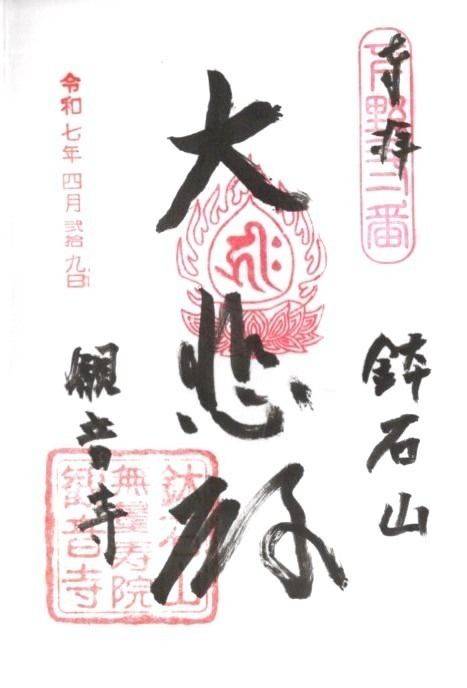 奉拝
下野第二番
鉢石山
大悲殿
令和七年 四月 弐拾九日
観音寺
鉢石山
無量寿院
観音寺